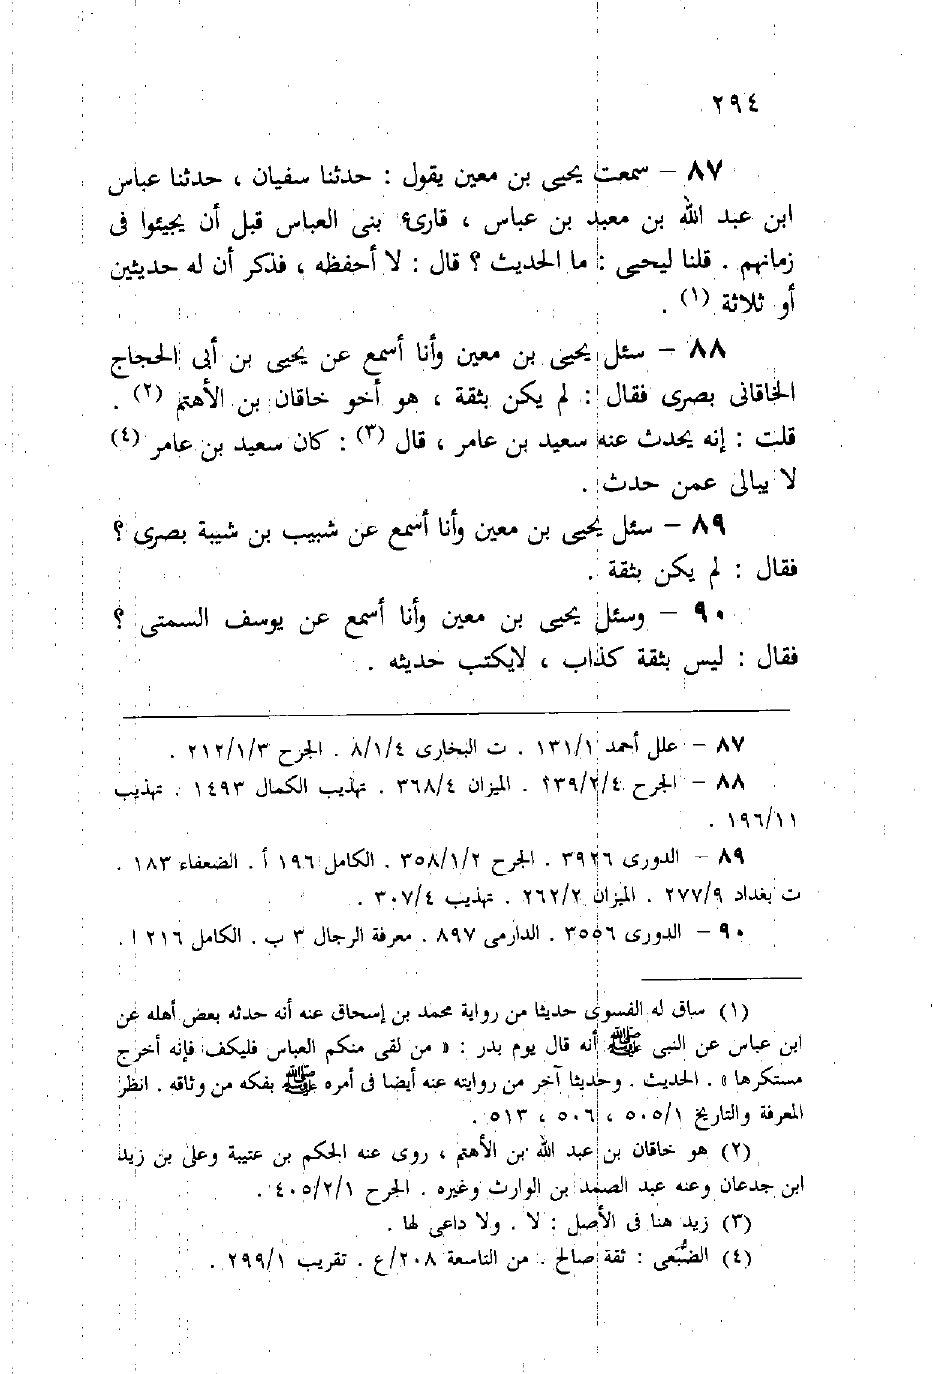 ٢٩٤
٨٧ – سمعت يحيى بن معين يقول : حدثنا سفيان ، حدثنا عباس
ابن عبد الله بن معبد بن عباس ، قارئ بنى العباس قبل أن يجيئوا فى
زمانهم . قلنا ليحيى : ما الحديث ؟ قال : لا أحفظه ، فذكر أن له حديثين
أو ثلاثة (١) .
٨٨ – سئل يحيى بن معين وأنا أسمع عن يحيى بن أبى الحجاج
الخاقانى بصرى فقال : لم يكن بثقة ، هو أخو خاقان بن الأهتم (٢) .
قلت : إنه يحدث عنه سعيد بن عامر ، قال (٣) : كان سعيد بن عامر (٤)
لا يبالى عمن حدث .
٨٩ – سئل يحيى بن معين وأنا أسمع عن شبيب بن شيبة بصرى ؟
فقال : لم يكن بثقة .
٩٠ – وسئل يحيى بن معين وأنا أسمع عن يوسف السمتى ؟
فقال : ليس بثقة كذاب ، لايكتب حديثه .
٨٧ – علل أحمد ١٣١/١ . ت البخارى ٨/١/٤ . الجرح ٢١٢/١/٣ .
٨٨ – الجرح ١٣٩/٢/٤ . الميزان ٣٦٨/٤ . تهذيب الكمال ١٤٩٣ . تهذيب
١٩٦/١١ .
٨٩ – الدورى ٣٩٢٦ . الجرح ٣٥٨/١/٢ . الكامل ١٩٦ أ . الضعفاء ١٨٣ .
ت بغداد ٢٧٧/٩ . الميزان ٢٦٢/٢ . تهذيب ٣٠٧/٤ .
٩٠ – الدورى ٣٥٥٦ . الدارمى ٨٩٧ . معرفة الرجال ٣ ب . الكامل ٢١٦ ا .
(١) ساق له الفسوى حديثا من رواية محمد بن إسحاق عنه أنه حدثه بعض أهله عن
ابن عباس عن النبى ﷺ أنه قال يوم بدر : « من لقى منكم العباس فليكف فإنه أخرج
مستكرها » . الحديث . وحديثا آخر من روايته عنه أيضا فى أمره ﷺ بفكه من وثاقه . انظر
المعرفة والتاريخ ٥٠٥/١ ، ٥٠٦ ، ٥١٣ .
(٢) هو خاقان بن عبد الله بن الأهتم ، روى عنه الحكم بن عتيبة وعلى بن زيد
ابن جدعان وعنه عبد الصمد بن الوارث وغيره . الجرح ٤٠٥/٢/١ .
(٣) زيد هنا فى الأصل : لا . ولا داعى لها .
(٤) الضُّبَعى : ثقة صالح . من التاسعة ٢٠٨/ع . تقريب ٢٩٩/١ .